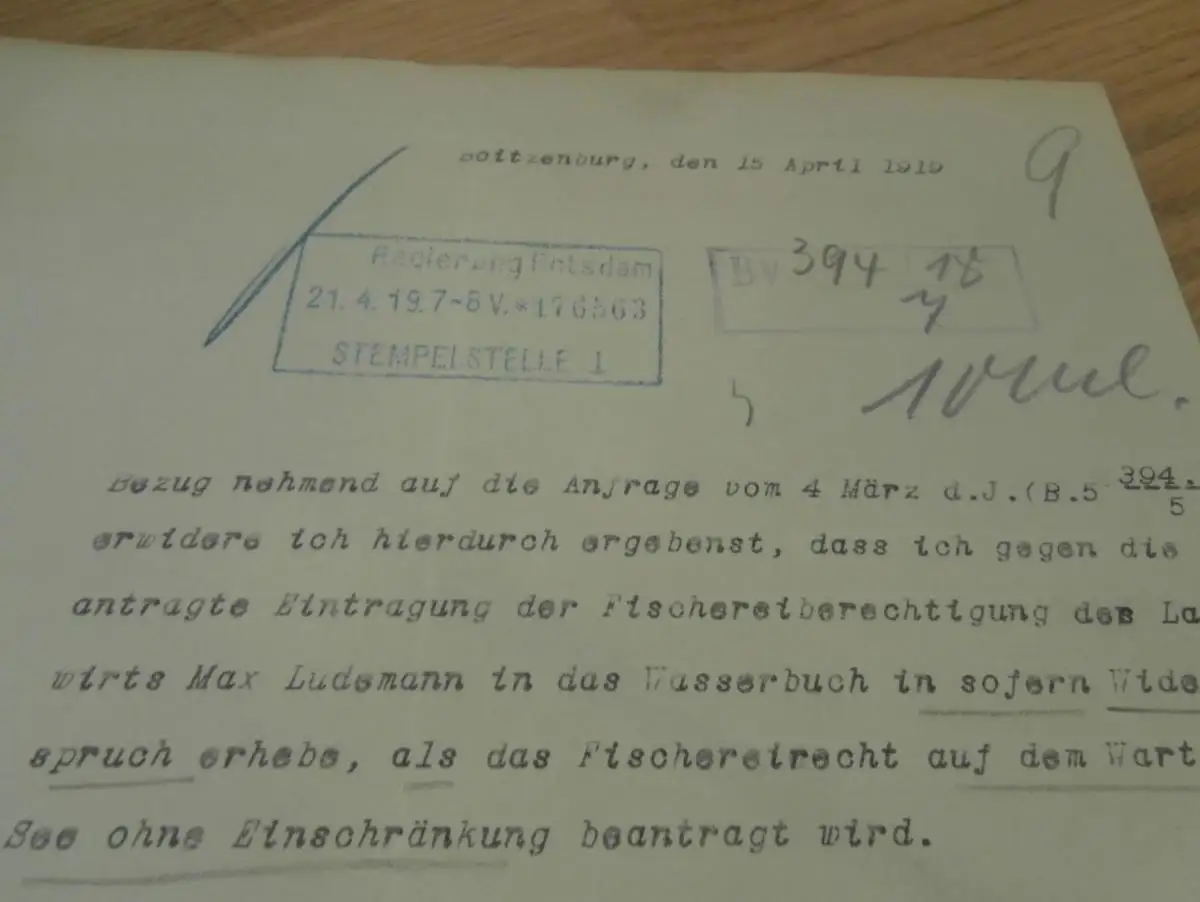 Boitzenburg, den 15 April 1919
9
Regierung Potsdam
21. 4. 19. 7-8 V. * 176563
STEMPELSTELLE 1
394 18
10
Bezug nehmend auf die Anfrage vom 4 März d.J.(B.5 394.
5
erwidere ich hierdurch ergebenst, dass ich gegen die
antragte Eintragung der Fischereiberechtigung des La
wirts Max Ludemann in das Wasserbuch in sofern Wide
spruch erhebe, als das Fischereirecht auf dem Wart
See ohne Einschränkung beantragt wird.